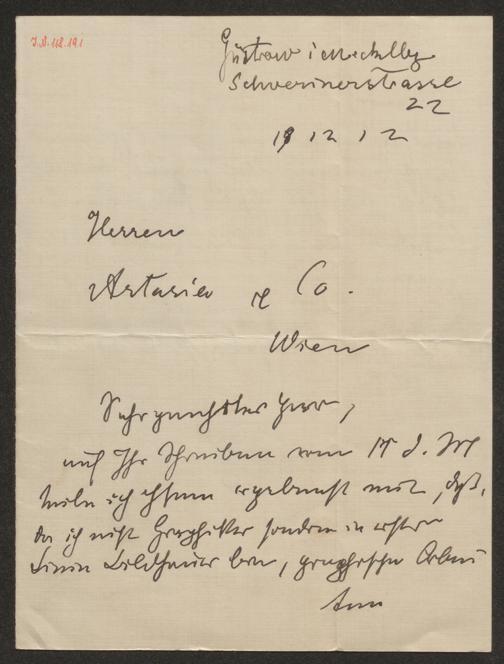 J.N. 118.191
Güstrow i Mecklbg
Schwerinerstrasse
22
19 12 12
Herren
Artaria & Co.
Wien
Sehr geehrter Herr,
auf Ihr Schreiben vom 17 d. M
teile ich Ihnen ergebenst mit, daß,
da ich nicht Graphiker sondern in erster
Linie Bildhauer bin, graphische Arbei
ten